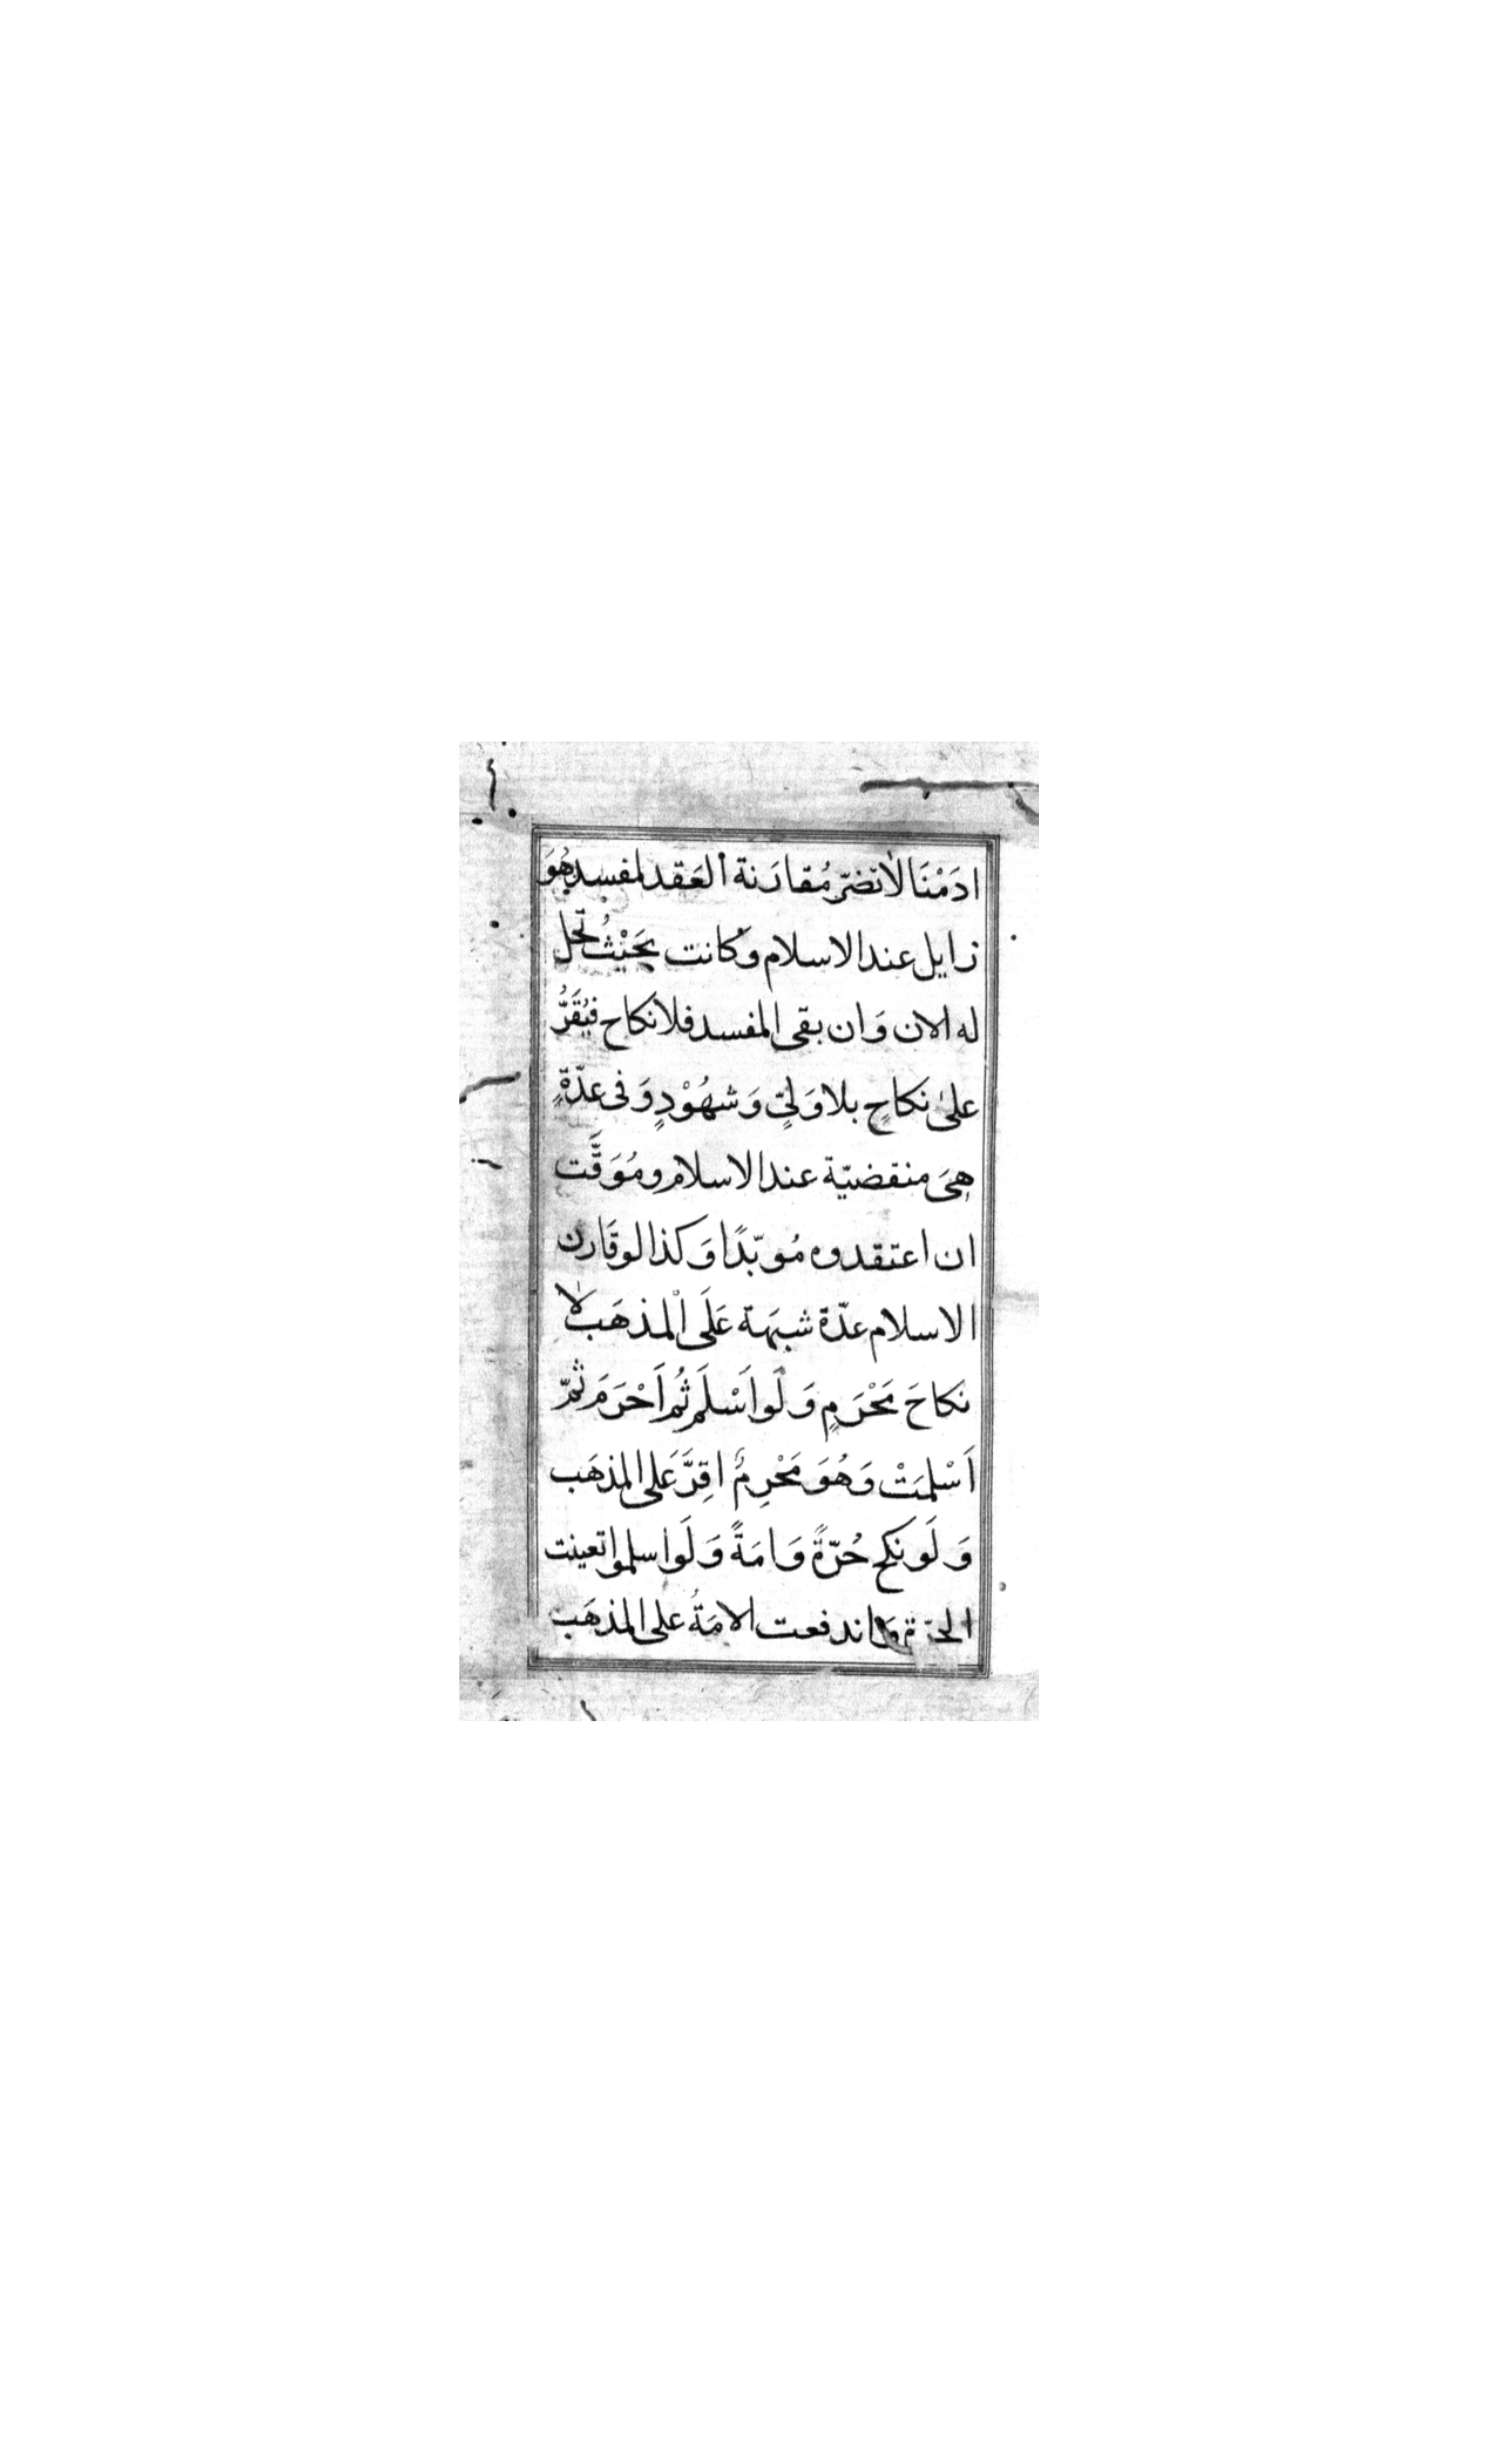 ادَمْنَا لا تضرّ مُقارَنة العَقد لمفسد هُوَ
زايل عند الاسلام وكانت بحَيْثُ تحّل
له الان وَان بقى المفسد فلا نكاح فيُقَرُّ
على نكاحٍ بلا وَليٍّ وَشهُوْدٍ وَفى عدّةٍ
هِىَ منقضيّة عند الاسلام ومُوَقَّت
ان اعتقدوه مُوبّدًا وَكذا لو قَارن
الاسلام عدّة شبهَة عَلَى الْمذهَب لا
نكاحَ مَحْرَمٍ وَلَو اَسْلَم ثُم اَحْرَمَ ثمّ
اَسْلمَتْ وَهُوَ مَحْرِمٌ اقِرَّ عَلى المذهَب
وَلَو نكح حُرّةً وَامَةً وَلَو اسلموا تعينت
الحرّة وَاندفعت الامَةُ على المذهَب